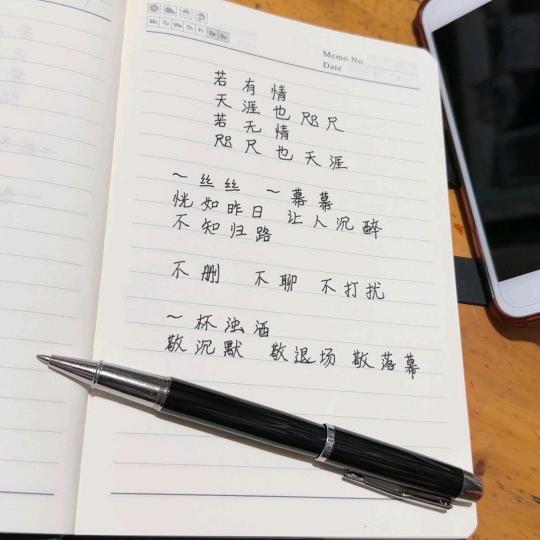 Mo Tu We Th Fr Sa Su
Memo No.
Date
若有情
天涯也咫尺
若无情
咫尺也天涯
一丝丝 一幕幕
恍如昨日 让人沉醉
不知归路
不删 不聊 不打扰
一杯浊酒
敬沉默 敬退场 敬落幕